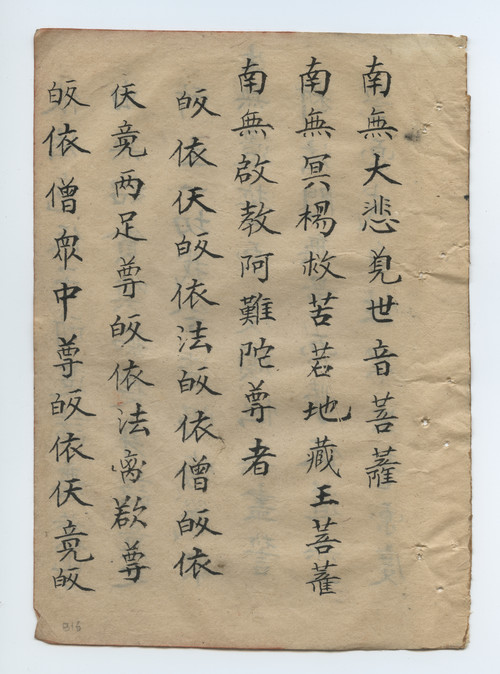 南無大悲見世音菩薩
南無冥楊救苦若地藏王菩薩
南無啟教阿難陀尊者
皈依仸皈依法皈依僧皈依
仸竟两足尊皈依法离欲尊
皈依僧眾中尊皈依仸竟皈